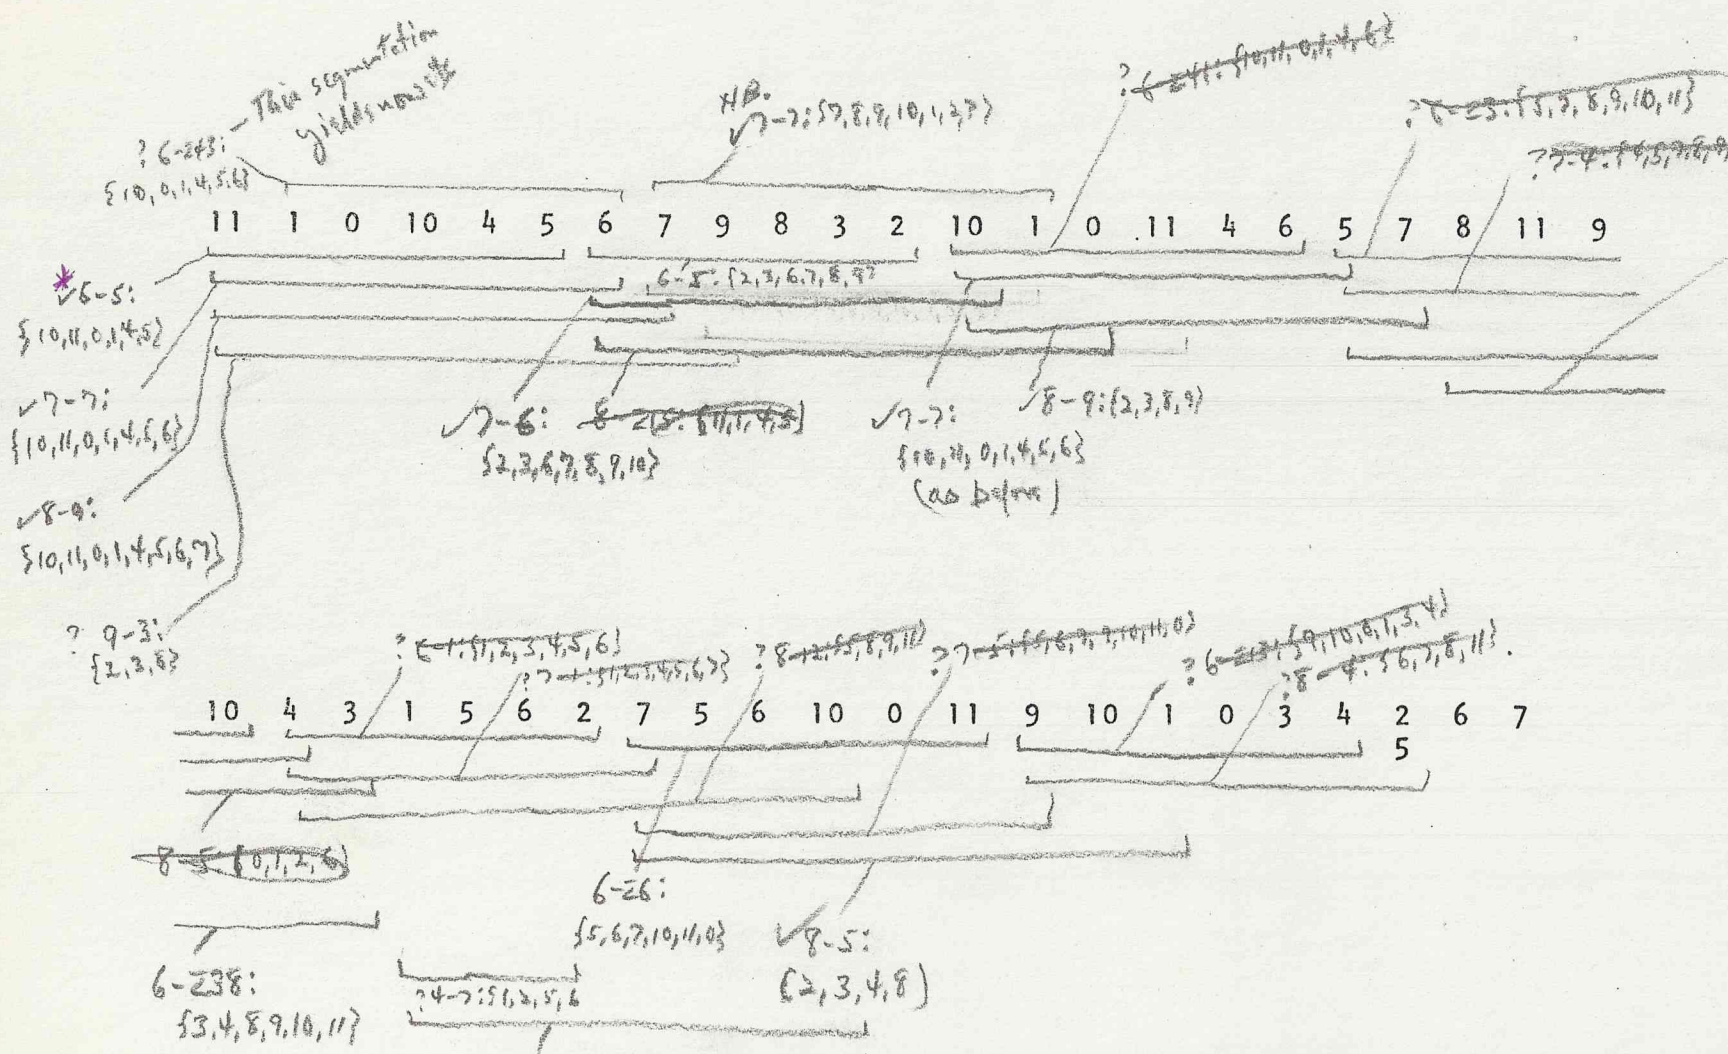 This segmentation
? 6-z43:
{10,0,1,4,5,6}
NB.
✓7-7:{7,8,9,10,1,2,3}
? 6-z41:{10,11,0,1,4,6}
? 6-z3:{5,7,8,9,10,11}
? 7-4:{4,5,7,8,9
11 1 0 10 4 5 6 7 9 8 3 2 10 1 0 .11 4 6 5 7 8 11 9
* ✓6-5:
{10,11,0,1,4,5}
6-5:{2,3,6,7,8,9}
✓7-7:
{10,11,0,1,4,5,6}
✓7-6:
{2,3,6,7,8,9,10}
8-z15:{11,1,4,5}
✓7-7:
{10,11,0,1,4,5,6}
(as before)
✓8-9:{2,3,8,9}
✓8-9:
{10,11,0,1,4,5,6,7}
? 9-3:
{2,3,8}
? 6-1:{1,2,3,4,5,6}
? 7-1:{1,2,3,4,5,6,7}
? 8-12:{5,8,9,11}
? 7-5:{5,6,7,9,10,11,0}
? 6-z13:{9,10,0,1,3,4}
? 8-4:{6,7,8,11}.
10 4 3 1 5 6 2 7 5 6 10 0 11 9 10 1 0 3 4 2 6 7
5
8-5 {0,1,2,6}
6-z6:
{5,6,7,10,11,0}
✓8-5:
{2,3,4,8}
6-z38:
{3,4,8,9,10,11}
? 4-7:{1,2,5,6